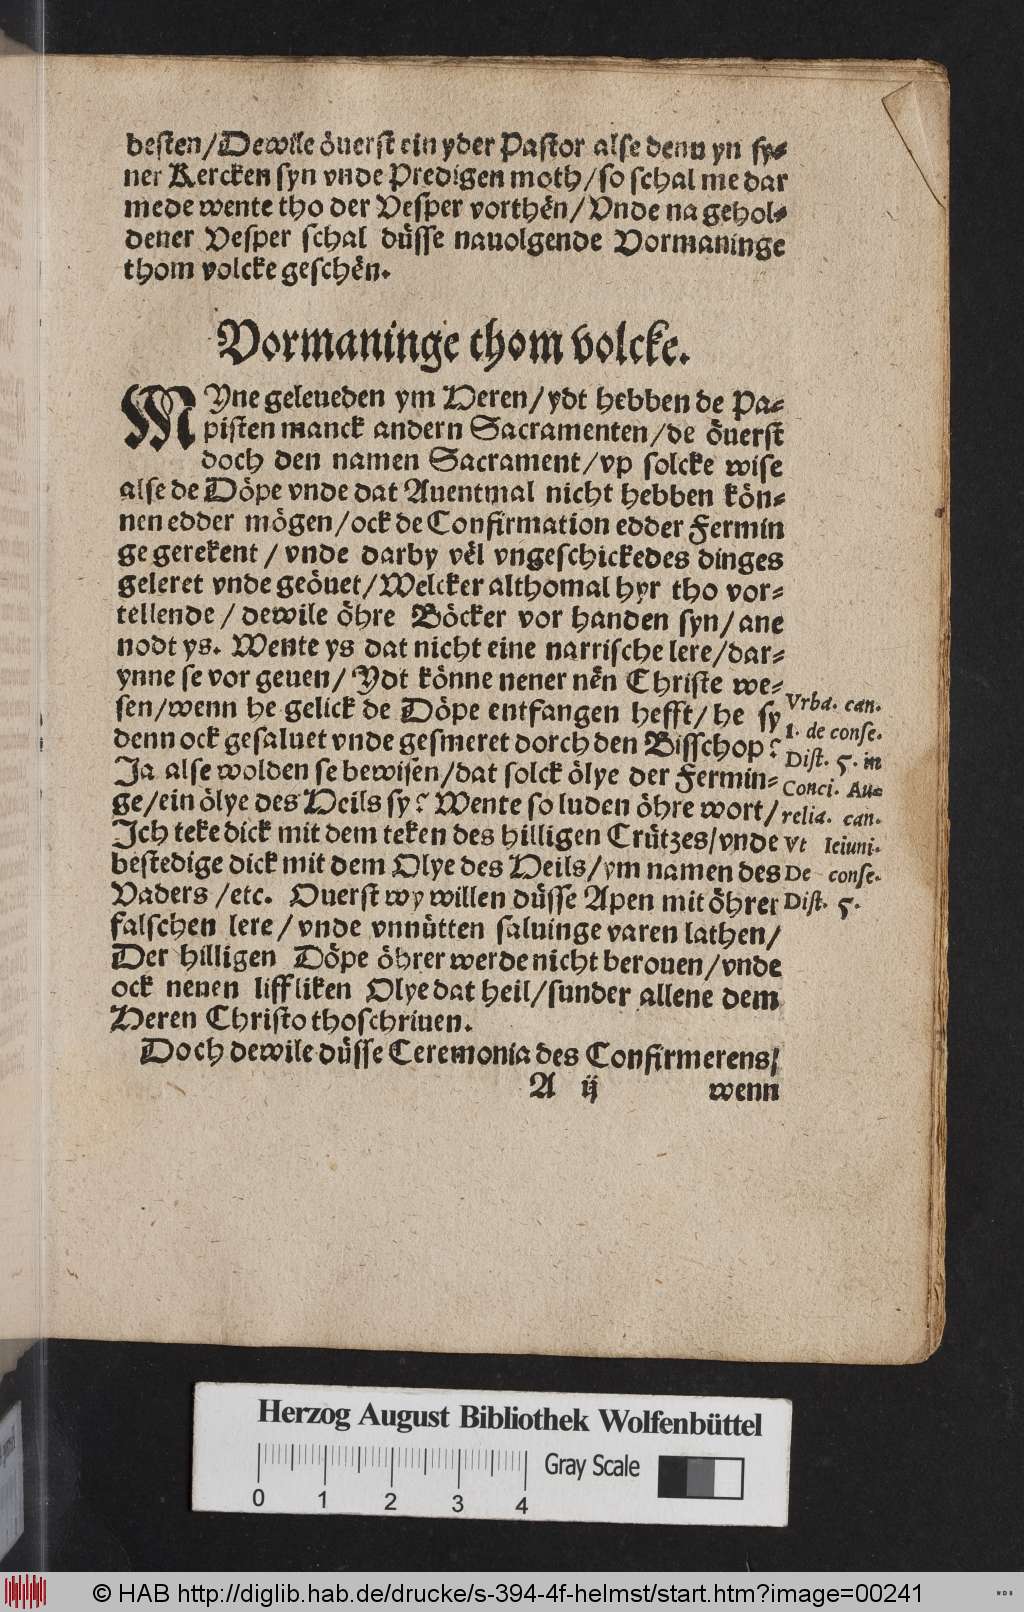 besten/Dewile öuerst ein yder Pastor alse denn yn sy-
ner Kercken syn vnde Predigen moth/so schal me dar
mede wente tho der Vesper vorthên/Vnde na gehol-
dener Vesper schal düsse nauolgende Vormaninge
thom volcke geschên.
Vormaninge thom volcke.
MYne geleueden ym Heren/ydt hebben de Pa-
pisten manck andern Sacramenten/de öuerst
doch den namen Sacrament/vp solcke wise
alse de Döpe vnde dat Auentmal nicht hebben kön-
nen edder mögen/ock de Confirmation edder Fermin
ge gerekent/vnde darby vêl vngeschickedes dinges
geleret vnde geöuet/Welcker althomal hyr tho vor-
tellende/dewile öhre Böcker vor handen syn/ane
nodt ys. Wente ys dat nicht eine narrische lere/dar-
ynne se vor geuen/Ydt könne nener nên Christe we-
sen/wenn he gelick de Döpe entfangen hefft/he sy
denn ock gesaluet vnde gesmeret dorch den Bisschop?
Ja alse wolden se bewisen/dat solck ölye der Fermin-
ge/ein ölye des Heils sy? Wente so luden öhre wort/
Ich teke dick mit dem teken des hilligen Crützes/vnde
bestedige dick mit dem Olye des Heils/ym namen des
Vaders/etc. Ouerst wy willen düsse Apen mit öhrer
falschen lere/vnde vnnütten saluinge varen lathen/
Der hilligen Döpe öhrer werde nicht berouen/vnde
ock nenen liffliken Olye dat heil/sunder allene dem
Heren Christo thoschriuen.
Doch dewile düsse Ceremonia des Confirmerens/
A ij wenn
Vrba. can.
1. de conse.
Dist. 5. in
Conci. Au-
relia. can.
Vt Ieiuni.
De conse.
Dist. 5.
Herzog August Bibliothek Wolfenbüttel
Gray Scale
0 1 2 3 4
© HAB http://diglib.hab.de/drucke/s-394-4f-helmst/start.htm?image=00241